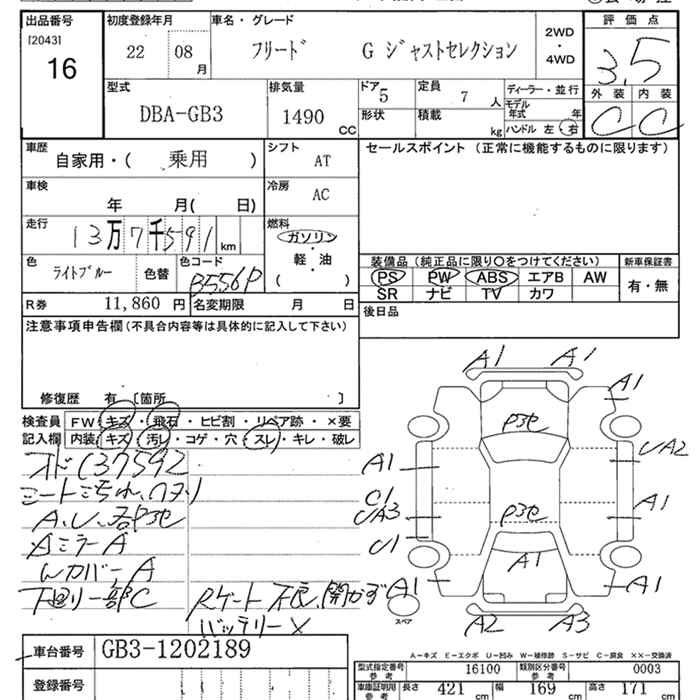 出品番号 初度登録年月 車名・グレード 2WD・4WD 評価点
[2043] 16 22 08月 フリード G ジャストセレクション 3.5
外装 内装
C C
型式 排気量 ドア 5 定員 7人 ディーラー・並行
DBA-GB3 1490CC 形状 積載 kg モデル年式 年
ハンドル 左 右
車歴 シフト セールスポイント (正常に機能するものに限ります)
自家用・( 乗用 ) AT
車検 冷房
年 月( 日) AC
走行 燃料
13万7千591km ガソリン・軽・油
( )
装備品 (純正品に限り○をつけてください) 新車保証書
色 色替 色コード PS PW ABS エアB AW 有・無
ライトブルー B556P SR ナビ TV カワ
R券 11,860 円 名変期限 月 日 後日品
注意事項申告欄 (不具合内容等は具体的に記入して下さい)
修復歴 有 [箇所 ]
検査員 FW キズ・飛石・ヒビ割・リペア跡・×要
記入欄 内装 キズ・汚レ・コゲ・穴・スレ・キレ・破レ
A1 A1
A1
P3セ
UA2
A1
UA3
A1
P3セ
U1
A1
A1
A1
A2 A3
スペア
オド(137592
A.U.
AミラーA
A
下廻り一部C
Rゲート不良、開かず
バッテリー×
A-キズ E-エクボ U-凹み W-補修跡 S-サビ C-腐食 XX-交換済
車台番号 GB3-1202189
型式指定番号 参考 16100 類別区分番号 参考 0003
登録番号
車庫証明用 参考 長さ 421cm 幅 169cm 高さ 171cm